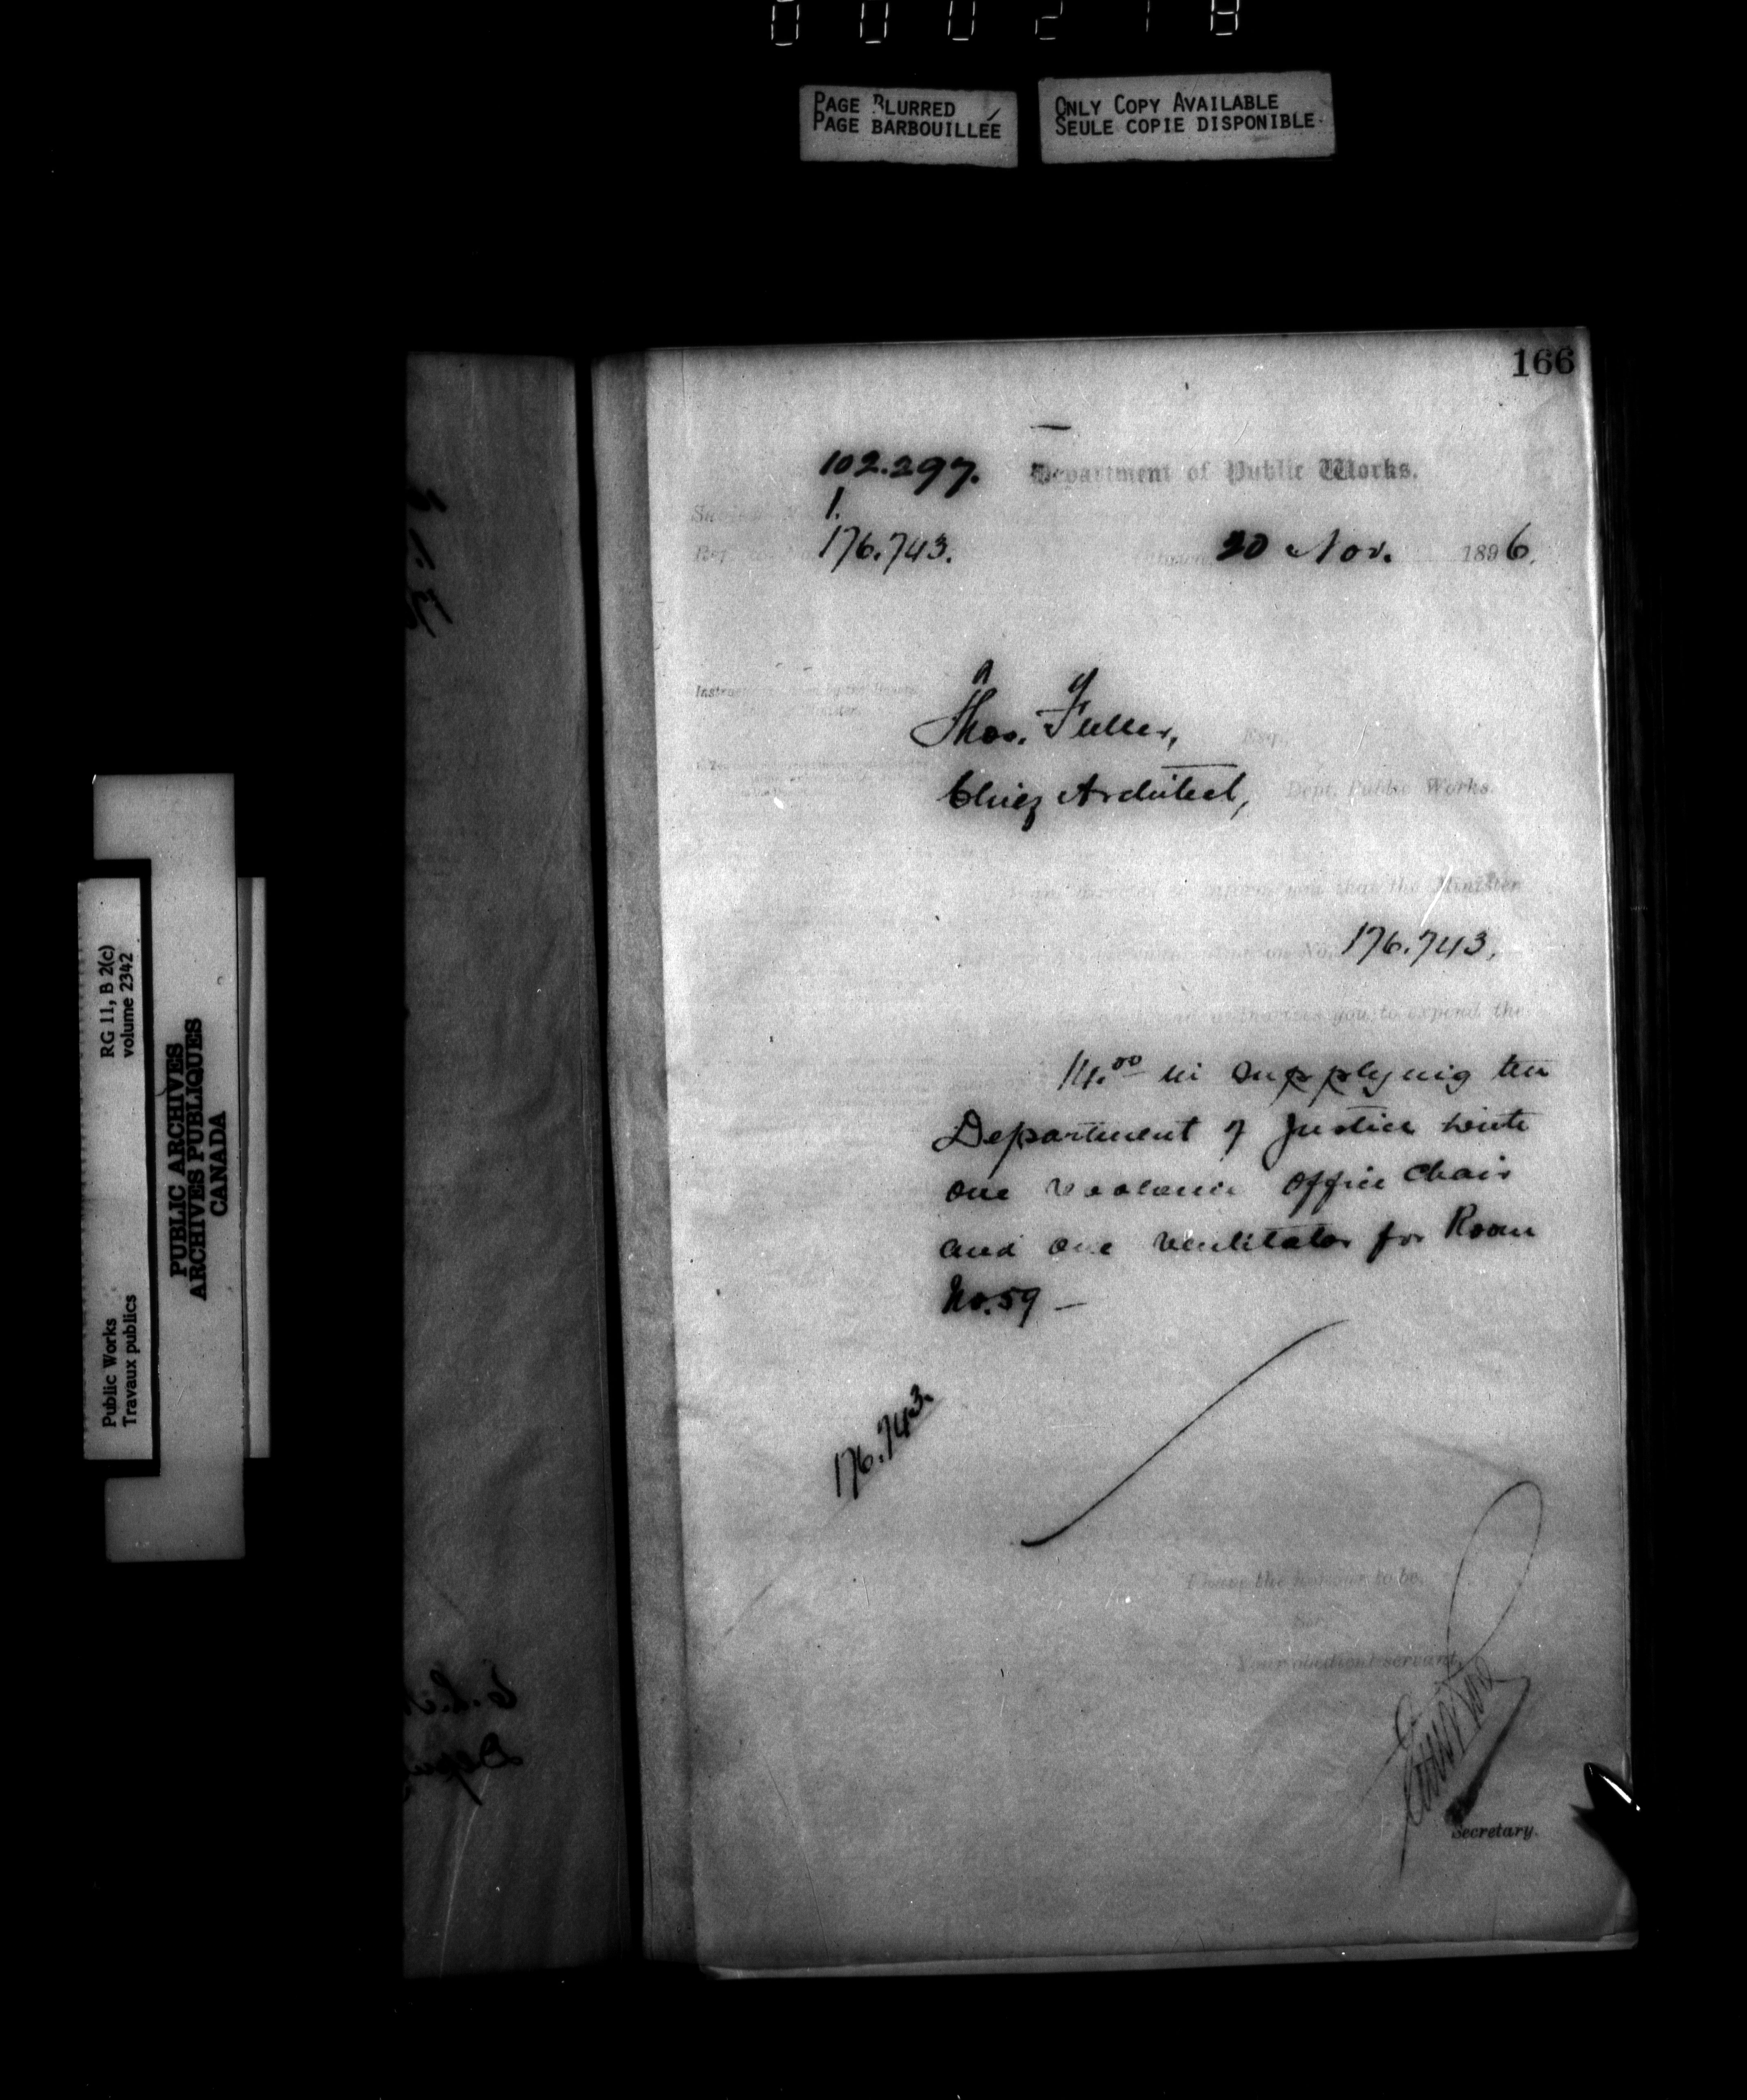 000218
PAGE BLURRED
PAGE BARBOUILLÉE
ONLY COPY AVAILABLE
SEULE COPIE DISPONIBLE
166
102.297. Department of Public Works.
1.
176.743. 20 Nov. 1896.
Thos. Fuller, Esq.
Chief Architect, Dept. Public Works.
inform you that the Minister
No. 176.743.
authorizes you to expend the
14.00 in supplying the
Department of Justice with
one office chair
and one ventilator for Room
No. 59 —
176.743.
I have the honour to be,
Sir,
Your obedient servant,
Secretary.
RG 11, B 2(c)
volume 2342
Public Works
Travaux publics
PUBLIC ARCHIVES
ARCHIVES PUBLIQUES
CANADA